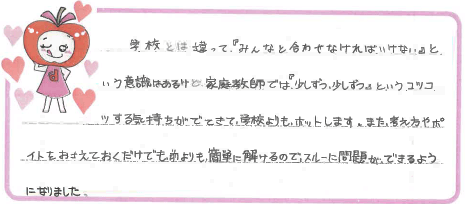 学校とは違って、『みんなと合わせなければいけない』と
いう意識はあるけど家庭教師では『少しずつ、少しずつ』というコツコ
ツする気持ちができてきて、学校よりも、ホットします。また、考え方やポ
イトをおさえておくだけでも前よりも、簡単に解けるので、スルーに問題が、できるよう
になりました。